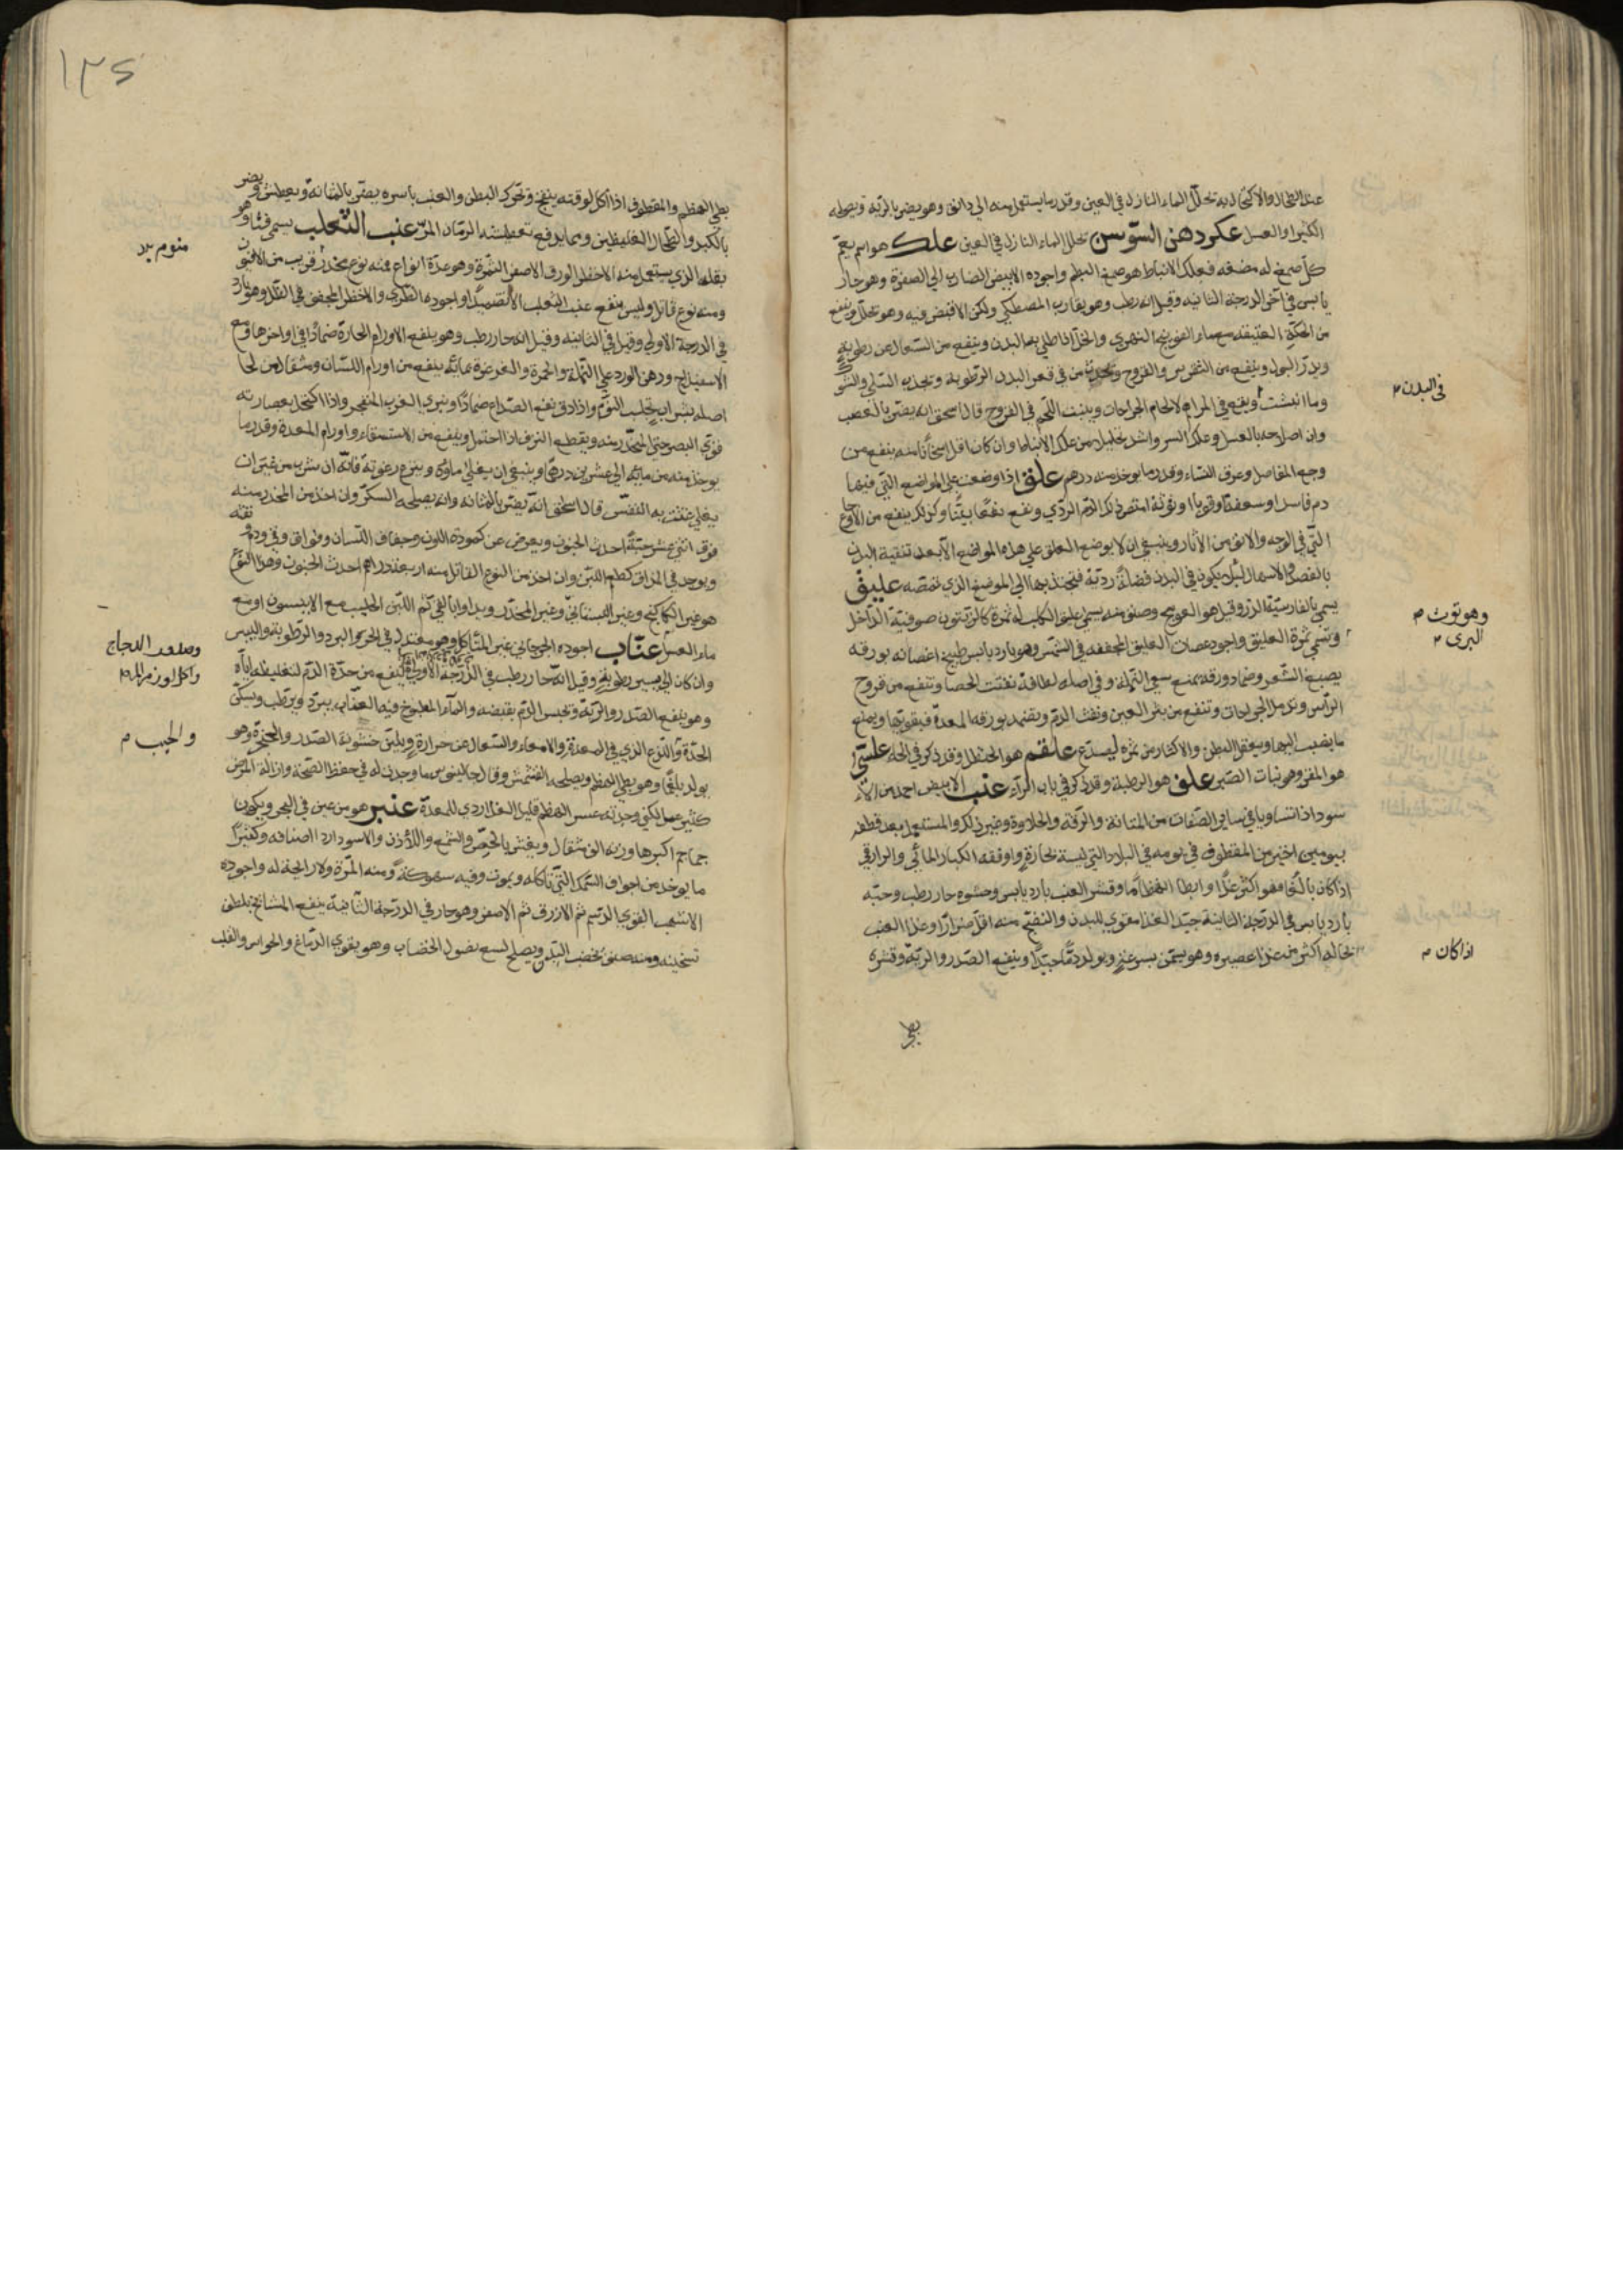 عند الطحال والاكتحال به تحلل الماء النازل في العين وقد رما يستعمل منه الى دانق وهو يضر بالرية ويصلحه
الكثيرا والعسل عكر دهن السوسن تحلل الماء النازل في العين علك هو اسم يعم
كل صمغ له مضغه فعلك الانباط هو صمغ البطم واجوده الابيض الضارب الى الصفرة وهو حار
يابس في آخر الدرجة الثانيه وقيل انه رطب وهو يقارب المصطكي ولكن لا قبض فيه وهو تحلل وينفع
من الحكة العتيقه مع ماء الفوتنج النهري والخل اذا طلي بها البدن وينفع من السعال عن رطوبة
ويدر البول وينفع من النقرس والقروح وتحدث من في قعر البدن الرطوبة وتجذب السلي والشوك
وما انبشت ويقع في المراهم لالحام الجراحات وينبت اللحم في القروح قال اسحق انه يضر بالعصب
وان اصلاحه بالعسل وعلك السرو اشد تحليلا من علك الانباط وان كان اقل اسخانا منه ينفع من
وجع المفاصل وعرق النساء وقدر ما يوخذ منه درهم علق اذا وضعت على المواضع التي فيها
دم فاسد او سعفة او قوبا او توثه امتص ذلك الدم الردي ونفع نفعا بينا وكذلك ينفع من الاوجاع
التي في الوجه والانف من الآثار وينبغي ان لا يوضع العلق على هذه المواضع الا بعد تنقية البدن
بالفصد والاسهال لئلا يكون في البدن فضلة ردية فتجذبها الى الموضع الذي تمصه عليق
يسمى بالفارسية الدر وقيل هو العوسج وصنف منه يسمى عليق الكلب له ثمرة كالزيتون صوفية الداخل
وتسمى ثمرة العليق واجود عصارات العليق المجففه في الشمس وهو بارد يابس طبيخ اغصانه بورقه
يصبغ الشعر وضماد ورقه يمنع سعي النملة وفي اصله لطافة تفتت الحصا وتنفع من قروح
الراس وتدمل الجراحات وتنفع من بثر العين ونفث الدم ويضمد بورقه المعدة فيقويها ويمنع
ما ينصب اليها ويعقل البطن والاكثار من ثمره يصدع علقم هو الحنظل وقد ذكر في الحاء علسي
هو المقر وهو نبات الصبر علف هو الرطبة وقد ذكر في باب الراء عنب الابيض احمد من الا
سود اذا تساويا في ساير الصفات من المتانة والرقة والحلاوة وغير ذلك والمستعمل بعد قطفه
بيومين اخير من المقطوف في يومه في البلاد التي ليست بحارة واوفقه الكبار المائي والرازقي
اذا كان بالغا فهو اكثر غذا وابطا انهضاما وقشر العنب بارد يابس وحشوه حار رطب وحبه
بارد يابس في الدرجة الثانية جيد الغذا مقوي للبدن والنضيج منه اقل ضررا وغذا العنب
بحاله اكثر من غذا عصيره وهو يسمن بسرعة ويولد دما جيدا وينفع الصدر والرية وقشره
بطي
في البدن
وهو توت
البرى
اذا كان
١٣٥
بطي الهضم والمقطوف اذا اكل لوقته ينفخ وتحرك البطن والعنب باسره يضر بالمثانة ويعطش ويضر
بالكبد والطحال الغليظين ومما يدفع تعطيشه الرمان المز عنب الثعلب يسمى فنا وهو
بقله الذي يستعمل منه الاخضر الورق الاصفر الثمرة وهو عدة انواع فمنه نوع مخدر قريب من الافيون
ومنه نوع قاتل وليس ينفع عنب الثعلب الا تضميدا واجوده الطري والاخضر المجفف في الظل وهو بارد
في الدرجة الاولى وقيل في الثانيه وقيل انه حار رطب وهو ينفع الاورام الحارة ضمادا في اواخرها ومع
الاسفيداج ودهن الورد على النملة والحمرة والغرغرة بمائه ينفع من اورام اللسان ومثقال من لحا
اصله بشراب تجلب النوم واذا دق نفع الصداع ضمادا ويبري الغرب المنفجر واذا اكتحل بعصارته
قوي البصر حتى المخدر منه ويقطع النزف اذا احتمل وينفع من الاستسقاء واورام المعدة وقدر ما
يوخذ منه من مايه الى عشرين درهما وينبغي ان يغلي ماؤه وينزع رغوته فانه ان شرب من غير ان
يغلي غثت به النفس قال اسحق انه يضر بالمثانه وانه يصلحه السكر وان اخذ من المخدر منه
فوق اثني عشر حبة احدث الجنون ويعرض عن كمودة اللون وجفاف اللسان وفواق وقي دم
ويوجد في المذاق كطعم اللبن وان اخذ من النوع القاتل منه اربعة دراهم احدث الجنون وهذا النوع
هو غير الكاكنج وغير البستاني وغير المخدر ويداوا بالقي ثم اللبن الحليب مع الانيسون او مع
ماء العسل عناب اجوده الجرجاني غير المتاكل وهو معتدل في الحر والبرد والرطوبة واليبس
وان كان الى يسير رطوبة وقيل انه حار رطب في الدرجة الاولى ينفع من حدة الدم لتغليظه اياه
وهو ينفع الصدر والرية وتحبس الدم بقبضه والماء المطبوخ فيه العناب يبرد ويرطب ويسكن
الحدة واللذع الذي في المعدة والامعاء والسعال عن حرارة ويلين خشونة الصدر والحنجرة وهو
يولد بلغما وهو بطي الهضم ويصلحه المشمش وقال جالينوس ما وجدت له في حفظ الصحة وازالة المرض
كثير عمل لكني وجدته عسر الهضم قليل الغذا ردي للمعدة عنبر هو من عين في البحر ويكون
جماجم اكبرها وزنه الف مثقال ويغش بالجص والشمع واللاذن والاسود اردا اصنافه وكثيرا
ما يوخذ من اجواف السمك التي تاكله ويموت وفيه سهوكة ومنه المرة ولا رايحة له واجوده
الاشهب القوي الدسم ثم الازرق ثم الاصفر وهو حار في الدرجة الثانية ينفع المشايخ بلطف
تسخينه ومنه صنف يخضب اليد ويصلح لسع نصول الخضاب وهو يقوي الدماغ والحواس والقلب
منوم
والجب